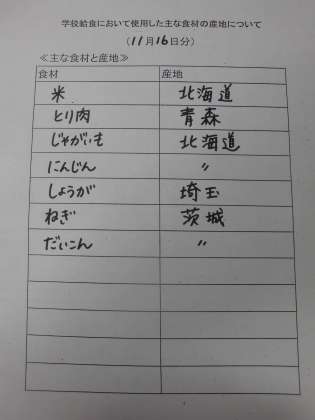 学校給食において使用した主な食材の産地について
(11月16日分)
≪主な食材と産地≫
食材 産地
米 北海道
とり肉 青森
じゃがいも 北海道
にんじん 〃
しょうが 埼玉
ねぎ 茨城
だいこん 〃